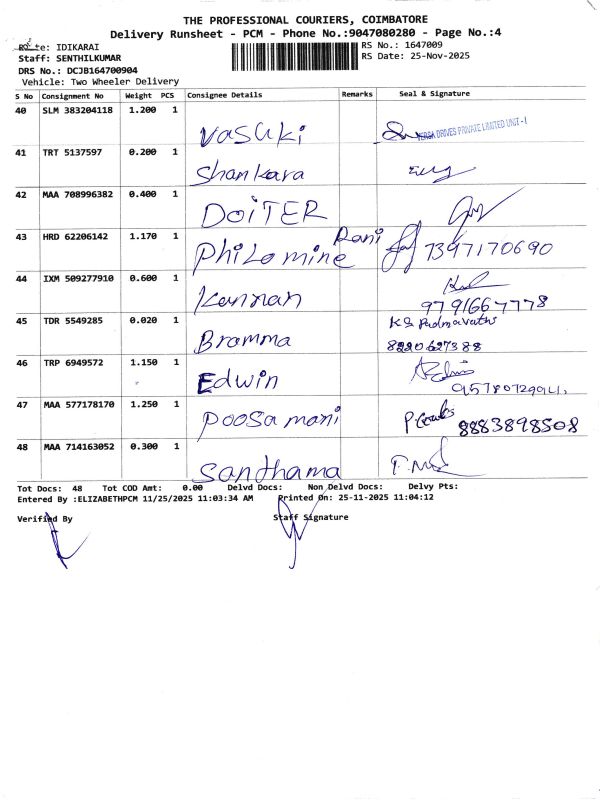 THE PROFESSIONAL COURIERS, COIMBATORE
Delivery Runsheet - PCM - Phone No.:9047080280 - Page No.:4
Route: IDIKARAI
RS No.: 1647009
Staff: SENTHILKUMAR
RS Date: 25-Nov-2025
DRS No.: DCJB164700904
Vehicle: Two Wheeler Delivery
S No Consignment No Weight PCS Consignee Details Remarks Seal & Signature
40 SLM 383204118 1.200 1 Vasuki VERSA DRIVES PRIVATE LIMITED UNIT - I
41 TRT 5137597 0.200 1 Shankara
42 MAA 708996382 0.400 1 DOITER
43 HRD 62206142 1.170 1 Philomine Rani 7397170690
44 IXM 509277910 0.600 1 Kannan 9791667778
45 TDR 5549285 0.020 1 Bramma KS Padmavathi
8220627388
46 TRP 6949572 1.150 1 Edwin
47 MAA 577178170 1.250 1 Poosa mani 8883898508
48 MAA 714163052 0.300 1 Santhama
Tot Docs: 48 Tot COD Amt: 0.00 Delvd Docs: Non Delvd Docs: Delvy Pts:
Entered By :ELIZABETHPCM 11/25/2025 11:03:34 AM Printed On: 25-11-2025 11:04:12
Verified By Staff Signature